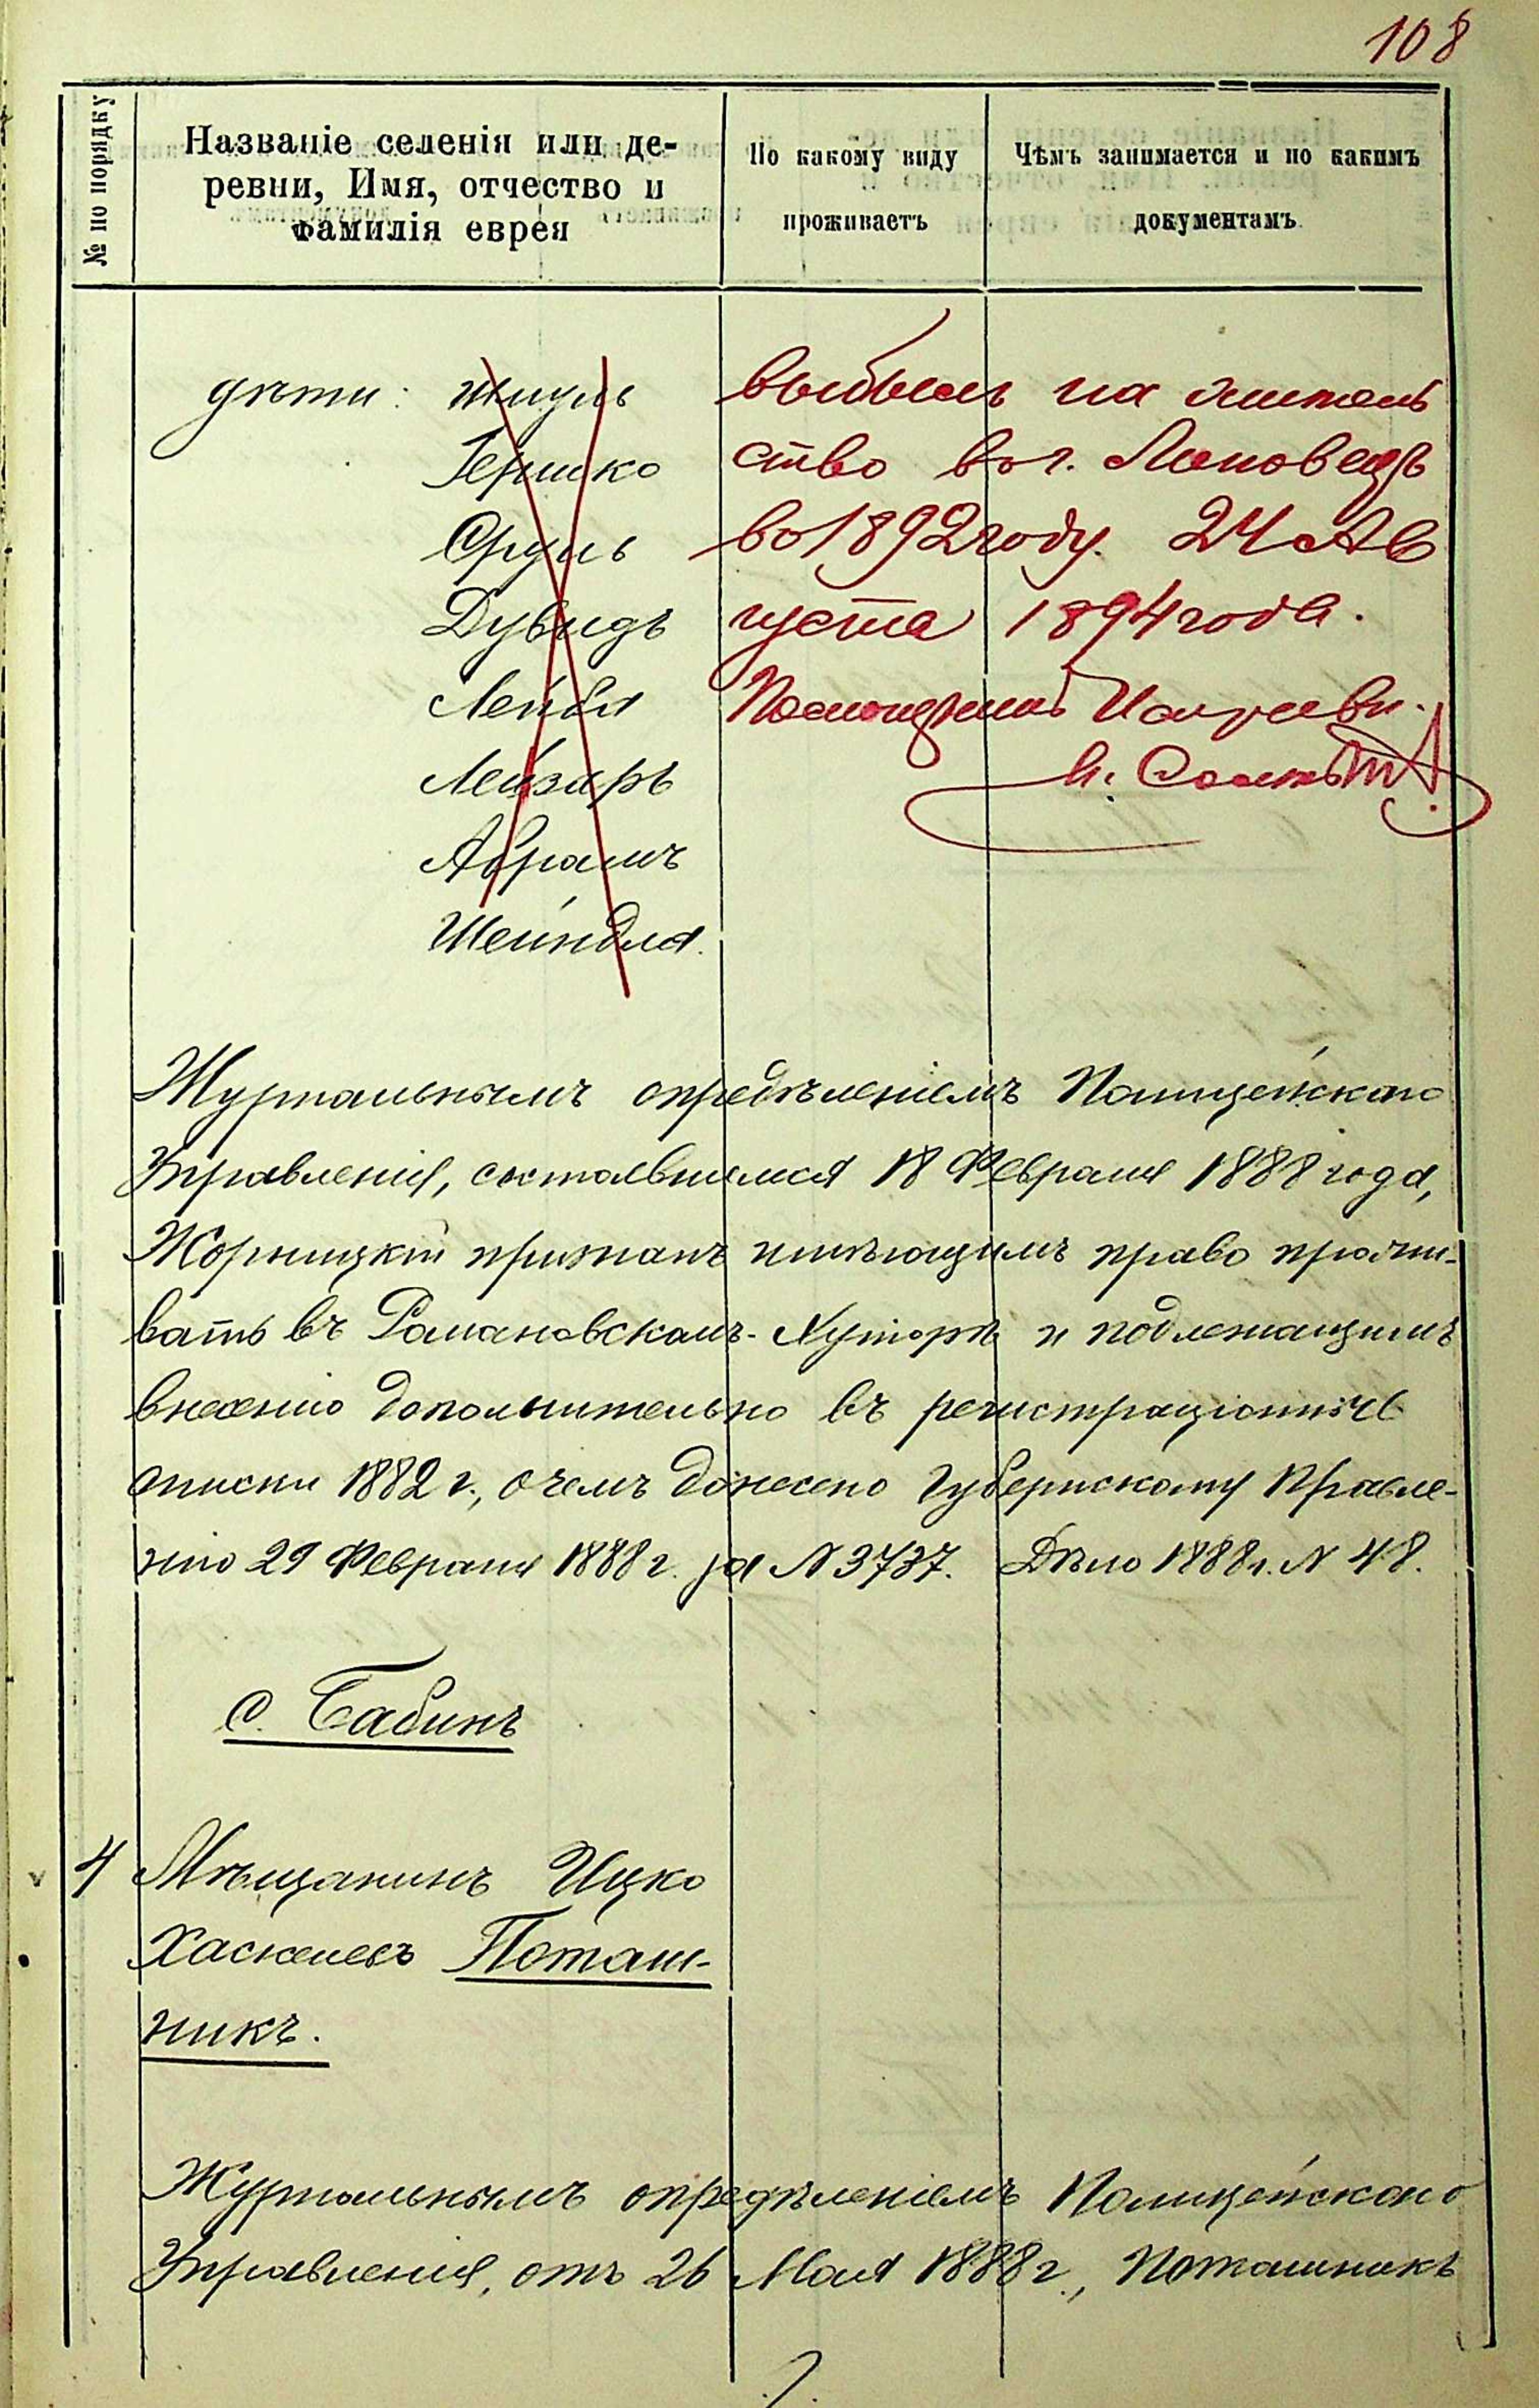 108
№ по порядку
Названіе селенія или де-
ревни, Имя, отчество и
фамилія еврея
По какому виду
проживаетъ
Чѣмъ занимается и по какимъ
документамъ
дѣти: Жидль
Гершко
Сруль
Дувидъ
Лейба
Лейзаръ
Абрамъ
Шейндля.
выбылъ на житель
ство въ г. Липовецъ
въ 1892 году. 24 Ав
густа 1894 года.
Журнальнымъ опредѣленіемъ Полицейскаго
Управленія, состоявшимся 18 Февраля 1888 года,
Жорницкій признанъ имѣющимъ право прожи-
вать въ Романовскомъ-Хуторѣ и подлежащимъ
внесенію дополнительно въ регистраціонные
списки 1882 г., о чемъ донесено Губернскому Правле-
нію 29 Февраля 1888 г. за N 3737. Дѣло 1888 г. N 48.
с. Бабинъ
4 Мѣщанинъ Ицко
Хаскелевъ Поташ-
никъ.
Журнальнымъ опредѣленіемъ Полицейскаго
Управленія, отъ 26 Мая 1888 г., Поташникъ